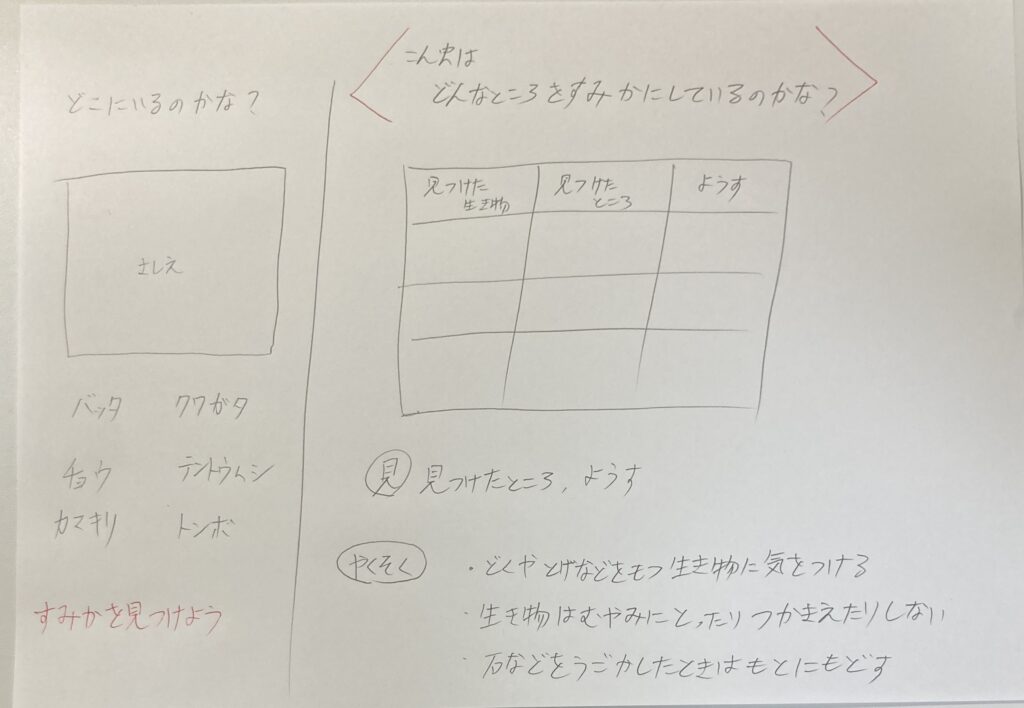 どこにいるのかな?
さしえ
バッタ クワガタ
チョウ テントウムシ
カマキリ トンボ
すみかを見つけよう
こん虫は
どんなところをすみかにしているのかな?
見つけた
生き物
見つけた
ところ
ようす
見 見つけたところ、ようす
やくそく ・どくやとげなどをもつ生き物に気をつける
・生き物はむやみにとったりつかまえたりしない
・石などをうごかしたときはもとにもどす